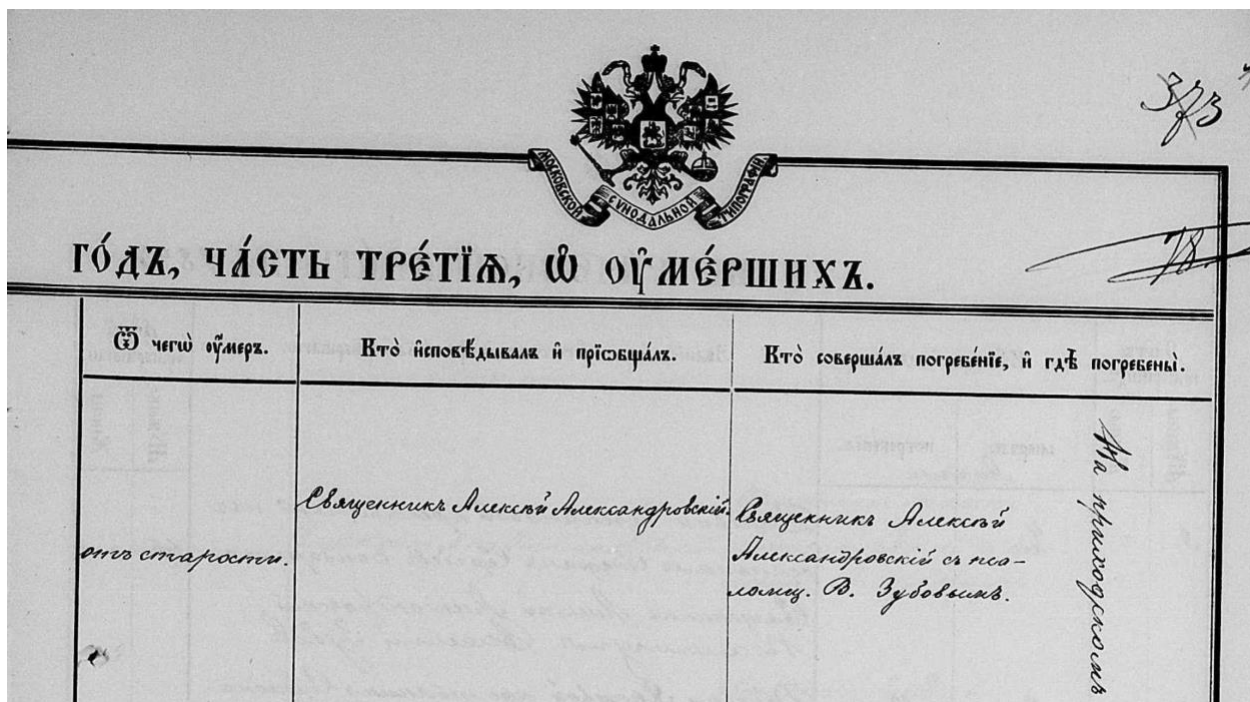 373
МОСКОВСКОЙ СѴНОДАЛЬНОЙ ТИПОГРАФІИ.
78.
го́дъ, ча́сть тре́тїѧ, ѡ҆ ᲂу҆ме́ршихъ.
Ѿ чегѡ̀ ᲂу҆́меръ.
Кто̀ и҆сповѣ́дывалъ и҆ прїѡбща́лъ.
Кто̀ соверша́лъ погребе́нїе, и҆ гдѣ̀ погребены̀.
отъ старости.
Священникъ Алексѣй Александровскій.
Священникъ Алексѣй
Александровскій съ пса-
ломщ. В. Зубовымъ.
На приходскомъ